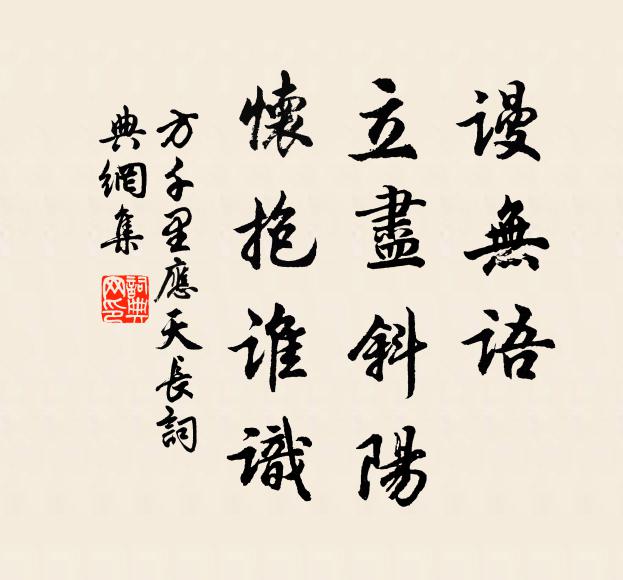 謾無語
立盡斜陽
懷抱誰識
方千里應天長詞
典網集
詞典
网印